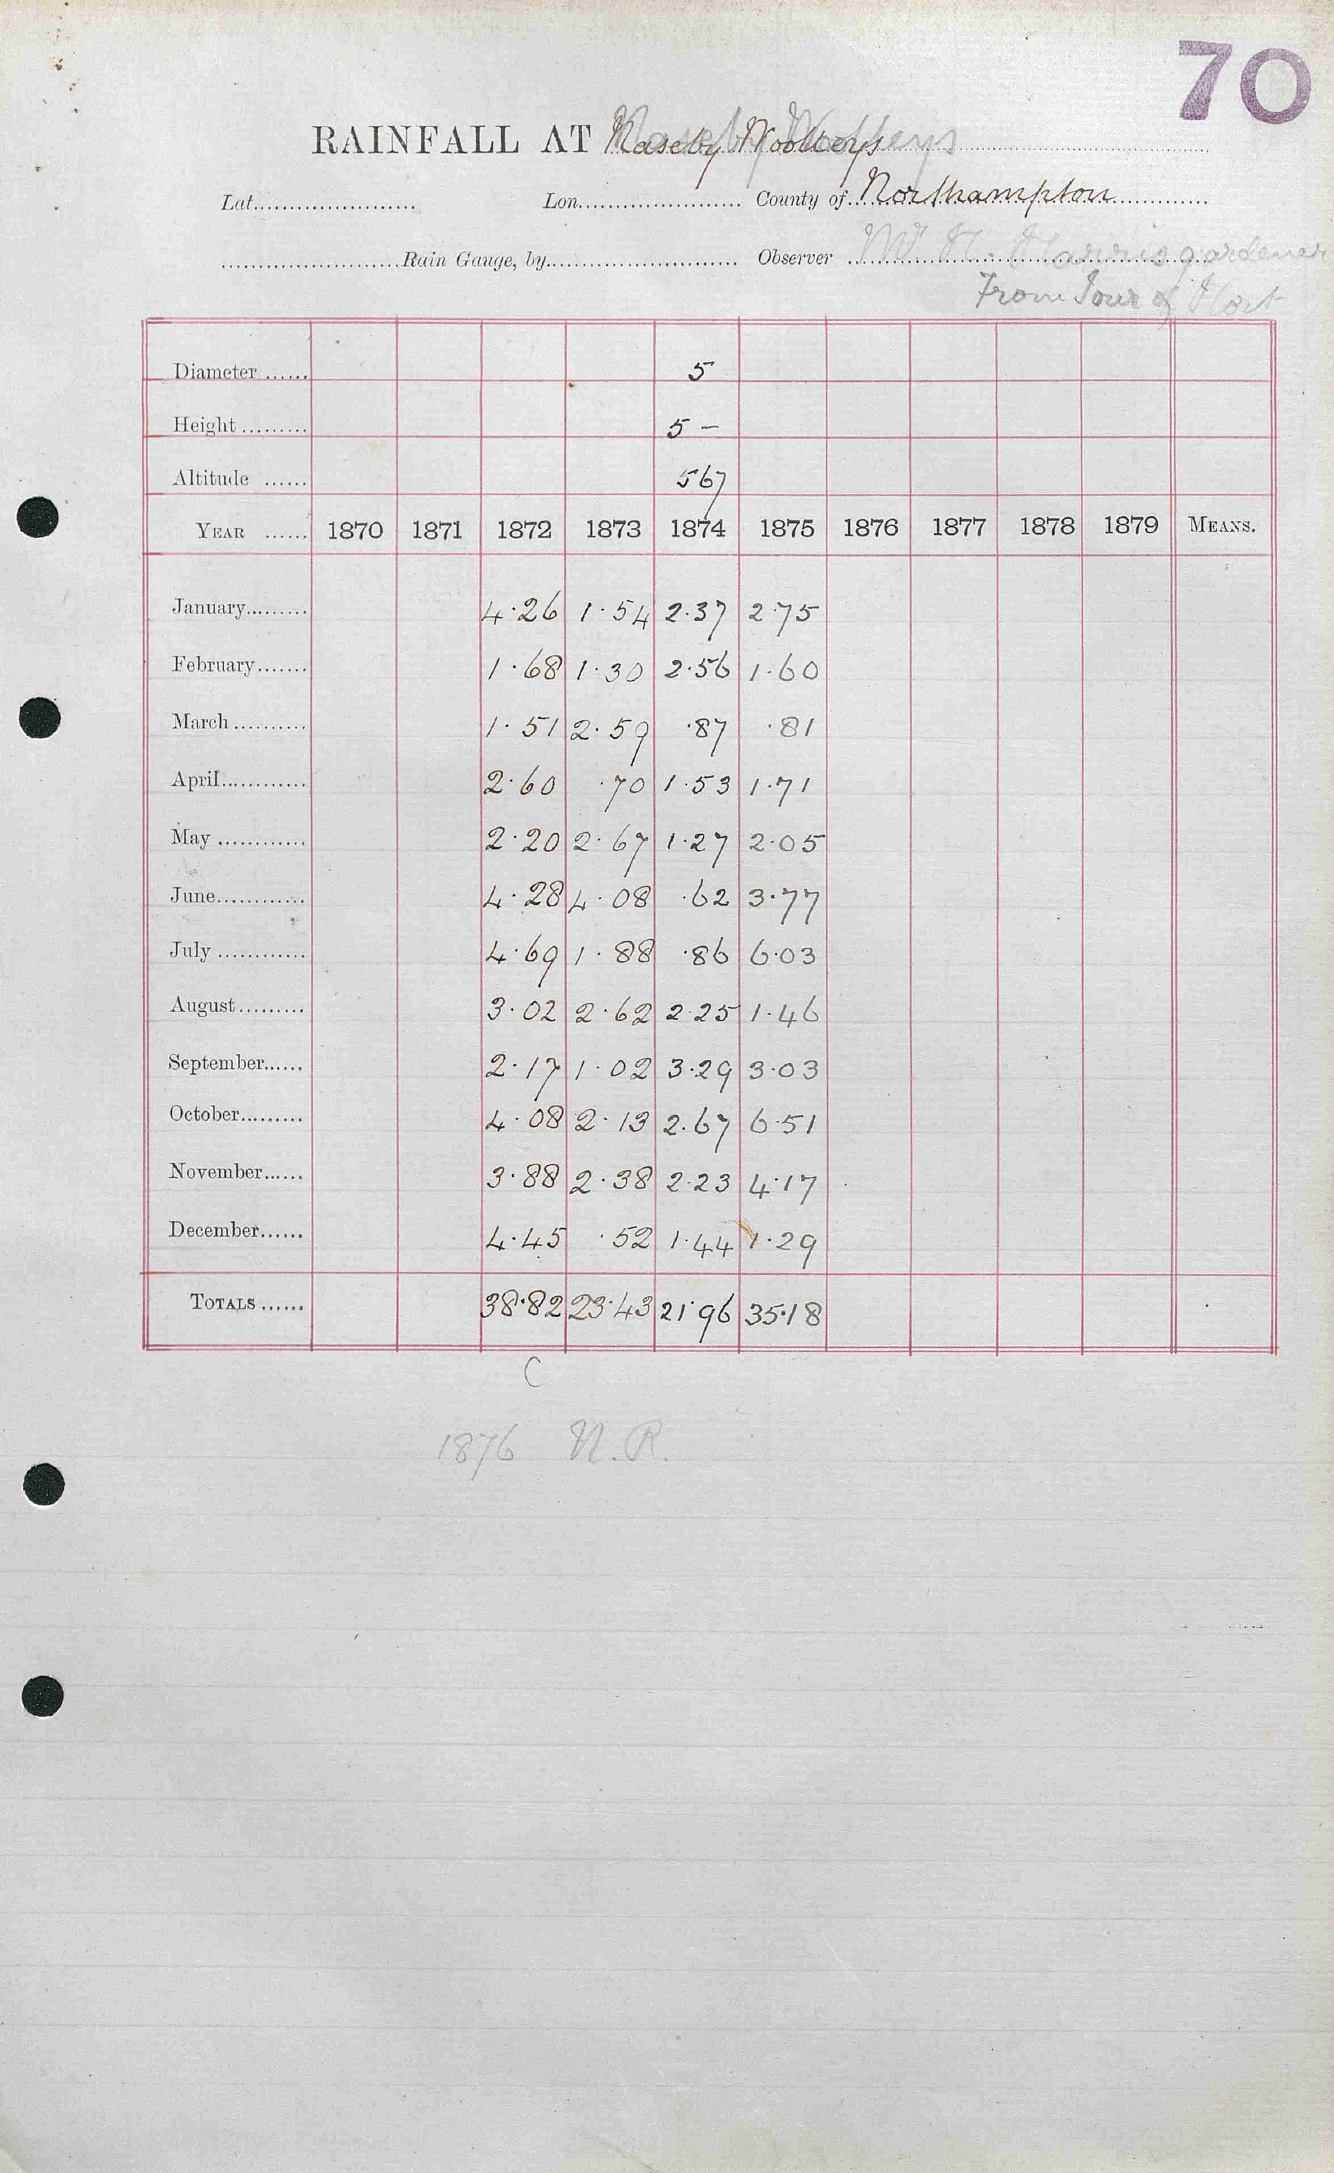 70
RAINFALL AT Naseby Woolleys
Lat. Lon. County of Northampton
Rain Gauge, by Observer Mr. Harris gardener
From Jour of Hort
Diameter 5
Height 5 -
Altitude 567
YEAR 1870 1871 1872 1873 1874 1875 1876 1877 1878 1879 MEANS.
January 4.26 1.54 2.37 2.75
February 1.68 1.30 2.56 1.60
March 1.51 2.59 .87 .81
April 2.60 .70 1.53 1.71
May 2.20 2.67 1.27 2.05
June 4.28 4.08 .62 3.77
July 4.69 1.88 .86 6.03
August 3.02 2.62 2.25 1.46
September 2.17 1.02 3.29 3.03
October 4.08 2.13 2.67 6.51
November 3.88 2.38 2.23 4.17
December 4.45 .52 1.44 1.29
TOTALS 38.82 23.43 21.96 35.18
C
1876 N.R.